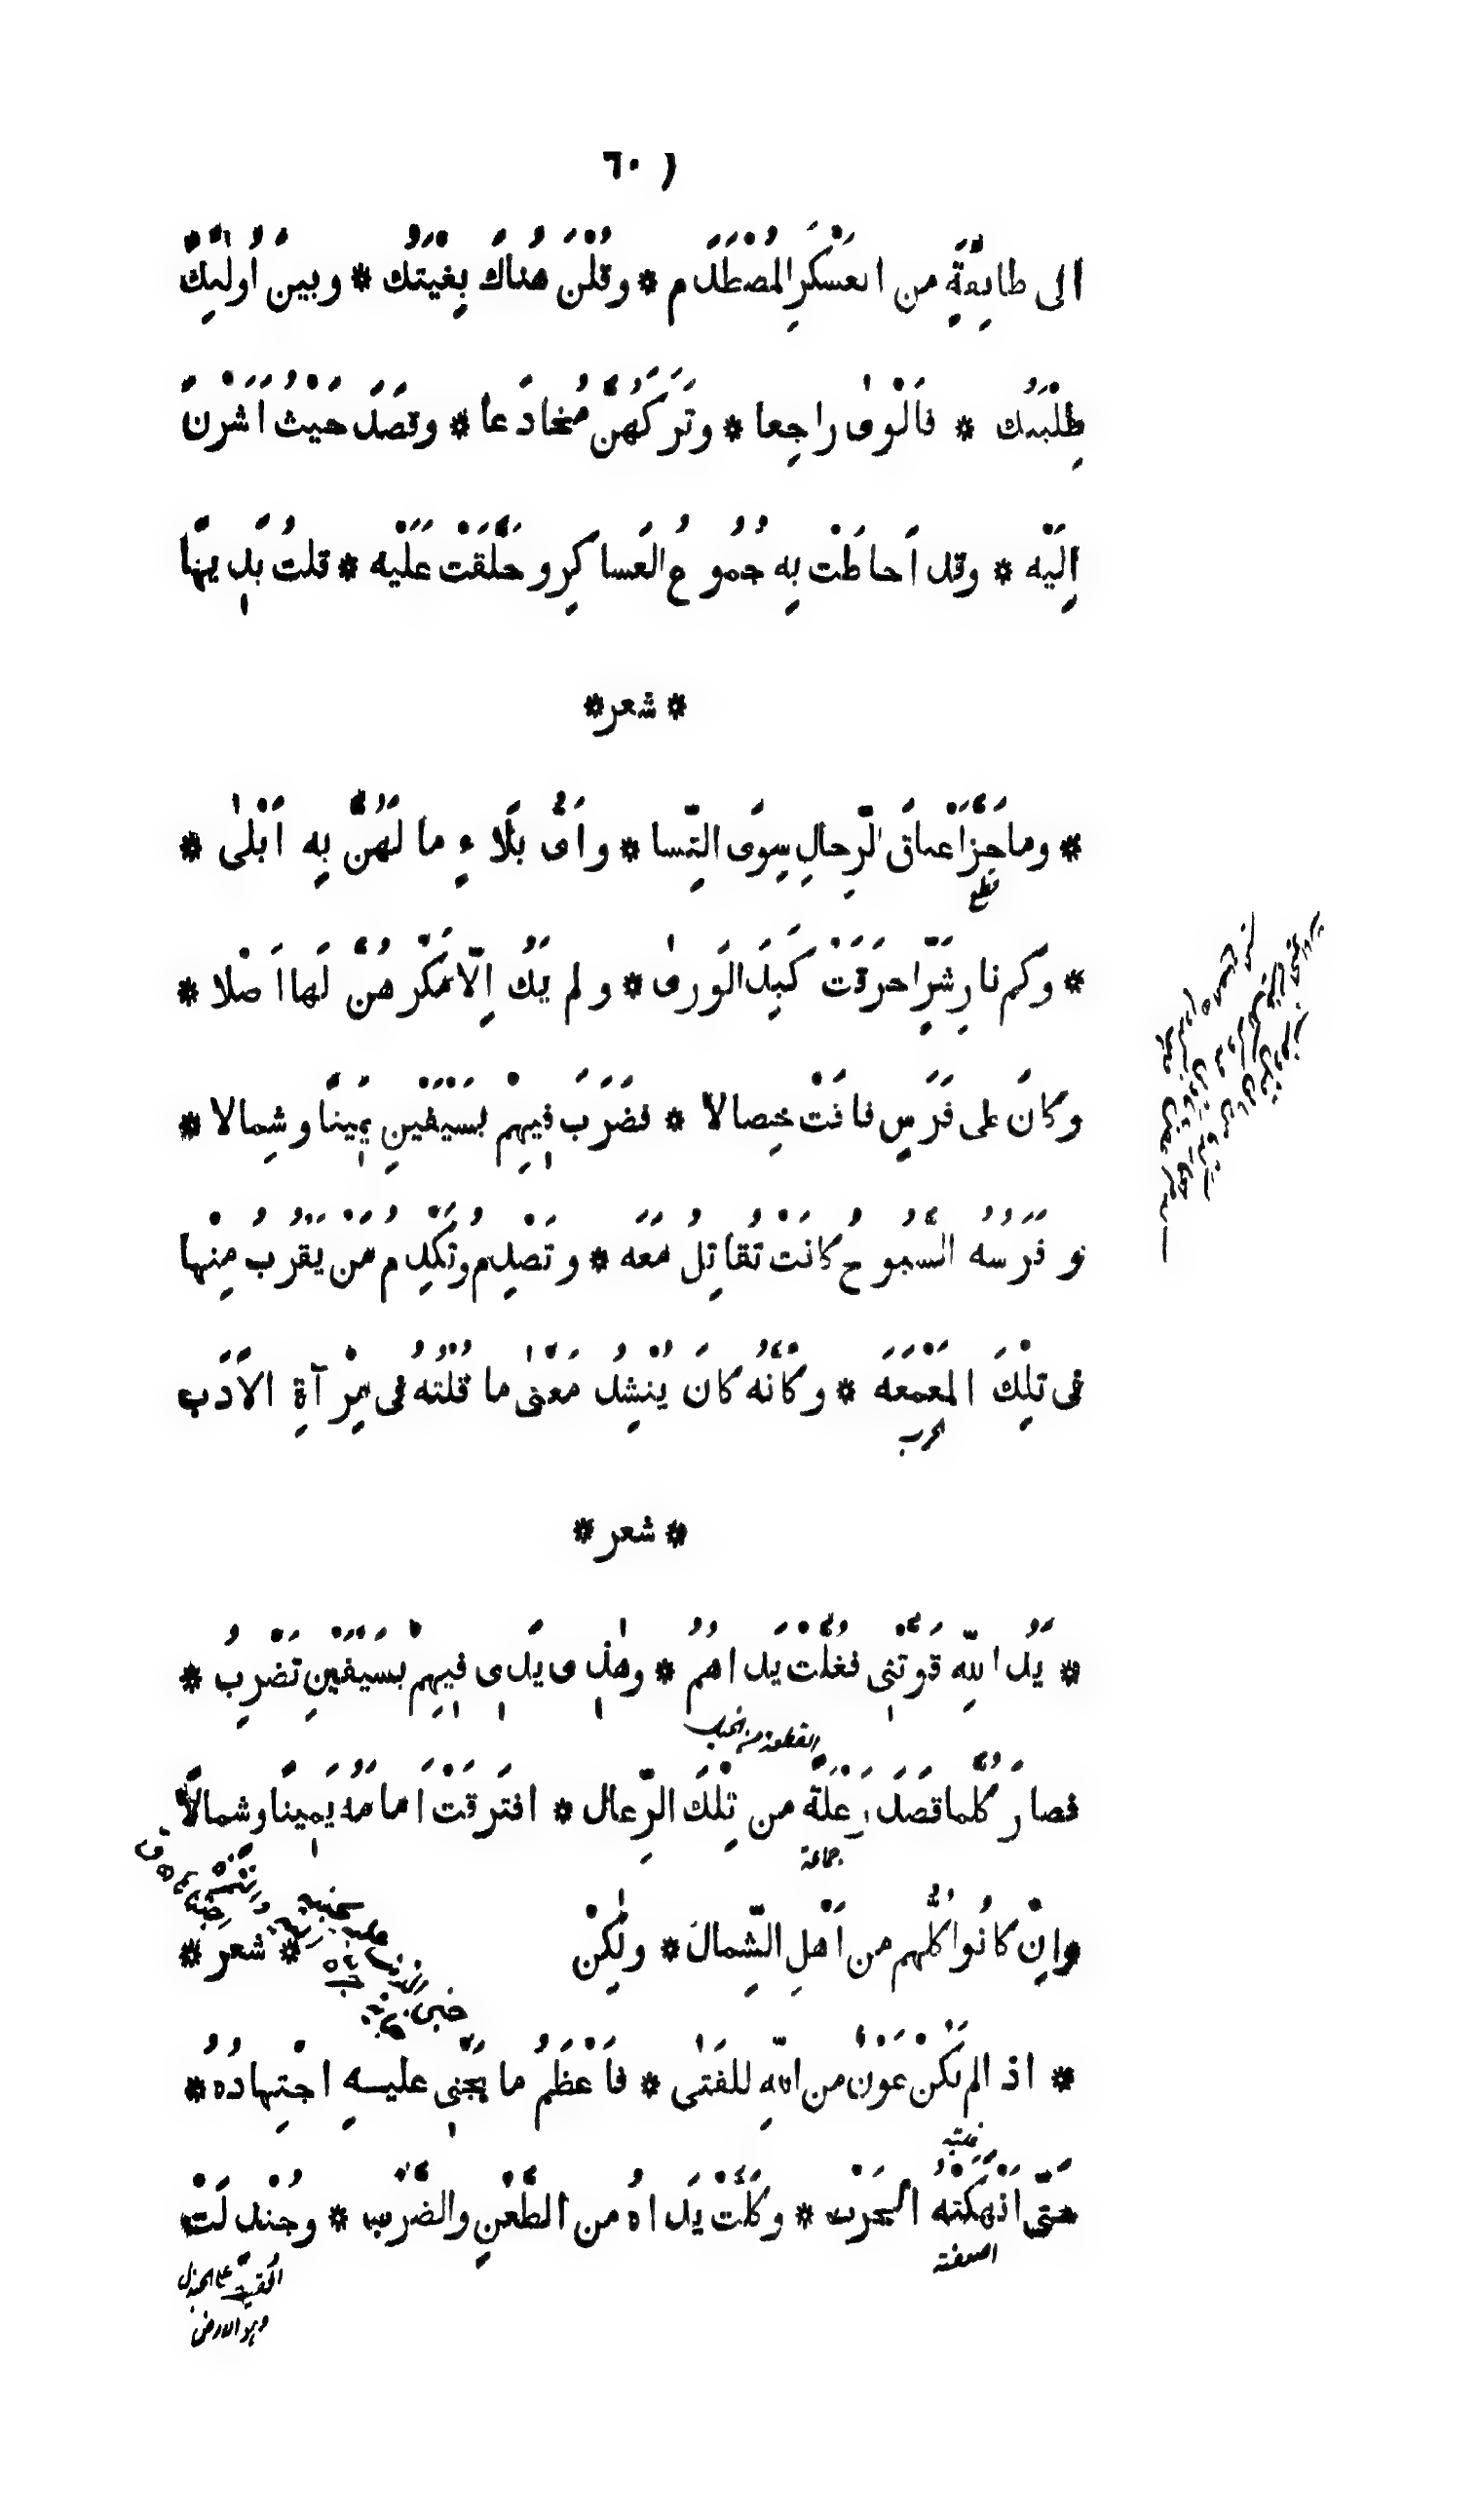 ٦٠١
الى طايِفَةٍ من العَسْكَرِ المُصْطَدَم * وقُلْنَ هُناكَ بِغْيَتُك * وبينَ أُولٰئِكَ
طِلْبَتُك * فَالْوىٰ راجِعا * وتَرَكَهُنَّ مُخادَعا * وقَصَدَ حَيْثُ اَشَرْنَ
اِلَيْه * وقد اَحاطَتْ بِه جُمُوعُ العَساكِرِ وحَلَّقَتْ عَلَيْه * قلتُ بَدِيهًا
* شعر *
* وما جَزَّ اَعناقَ الرِّجالِ سِوَى النِّسا * واَىُّ بَلَاءٍ ما لَهُنَّ بِه اَبْلىٰ *
قطع
* وكم نارِ شَرٍّ احرَقَتْ كَبِدَ الوَرىٰ * ولم يَكُ اِلّا مَكْرهُنَّ لَها اَصْلا *
وكانَ على فَرَسٍ فاقَتْ خِصالا * فضَرَبَ فيهِمْ بسَيْفَيْنِ يَمينًا وشِمالا *
وفَرَسُهُ السَّبُوحُ كانَتْ تُقاتِلُ مَعَه * وتَصْدِمُ وتَكْدِمُ مَنْ يَقْرُبُ مِنْها
فى تِلْكَ المَعْمَعَه * وكاَنَّهُ كانَ يُنْشِدُ مَعْنٰى ما قُلْتُهُ فى مِرْآةِ الاَدَبِ
الحرب
* شعر *
* يَدُ اللّهِ قَوَّتْنِى فغُلَّتْ يَداهُمُ * وهٰذِى يَدِى فيهِمْ بسَيْفَيْنِ تَضْرِبُ *
القطعة من الخيل
فصارَ كُلَّما قَصَدَ رَعْلَةً من تِلْكَ الرِّعال * افتَرقَتْ اَمامَهُ يَمِينًا وشِمالًا
جماعة
وانْ كانُوا كُلُّهم من اَهْلِ الشِّمال * ولٰكِنْ * شعر *
* اذا لم تَكُنْ عَوْنٌ من اللّهِ للفَتٰى * فاَعْظَمُ ما يَجْنِى عليهِ اجْتِهادُهُ *
حَتّى اَنْهَكَتْهُ الحَرْب * وكَلَّتْ يَداهُ من الطَّعْنِ والضَّرْب * وجُنْدِلَتْ
اضعفته
القيت على الجندل
وهو الارض